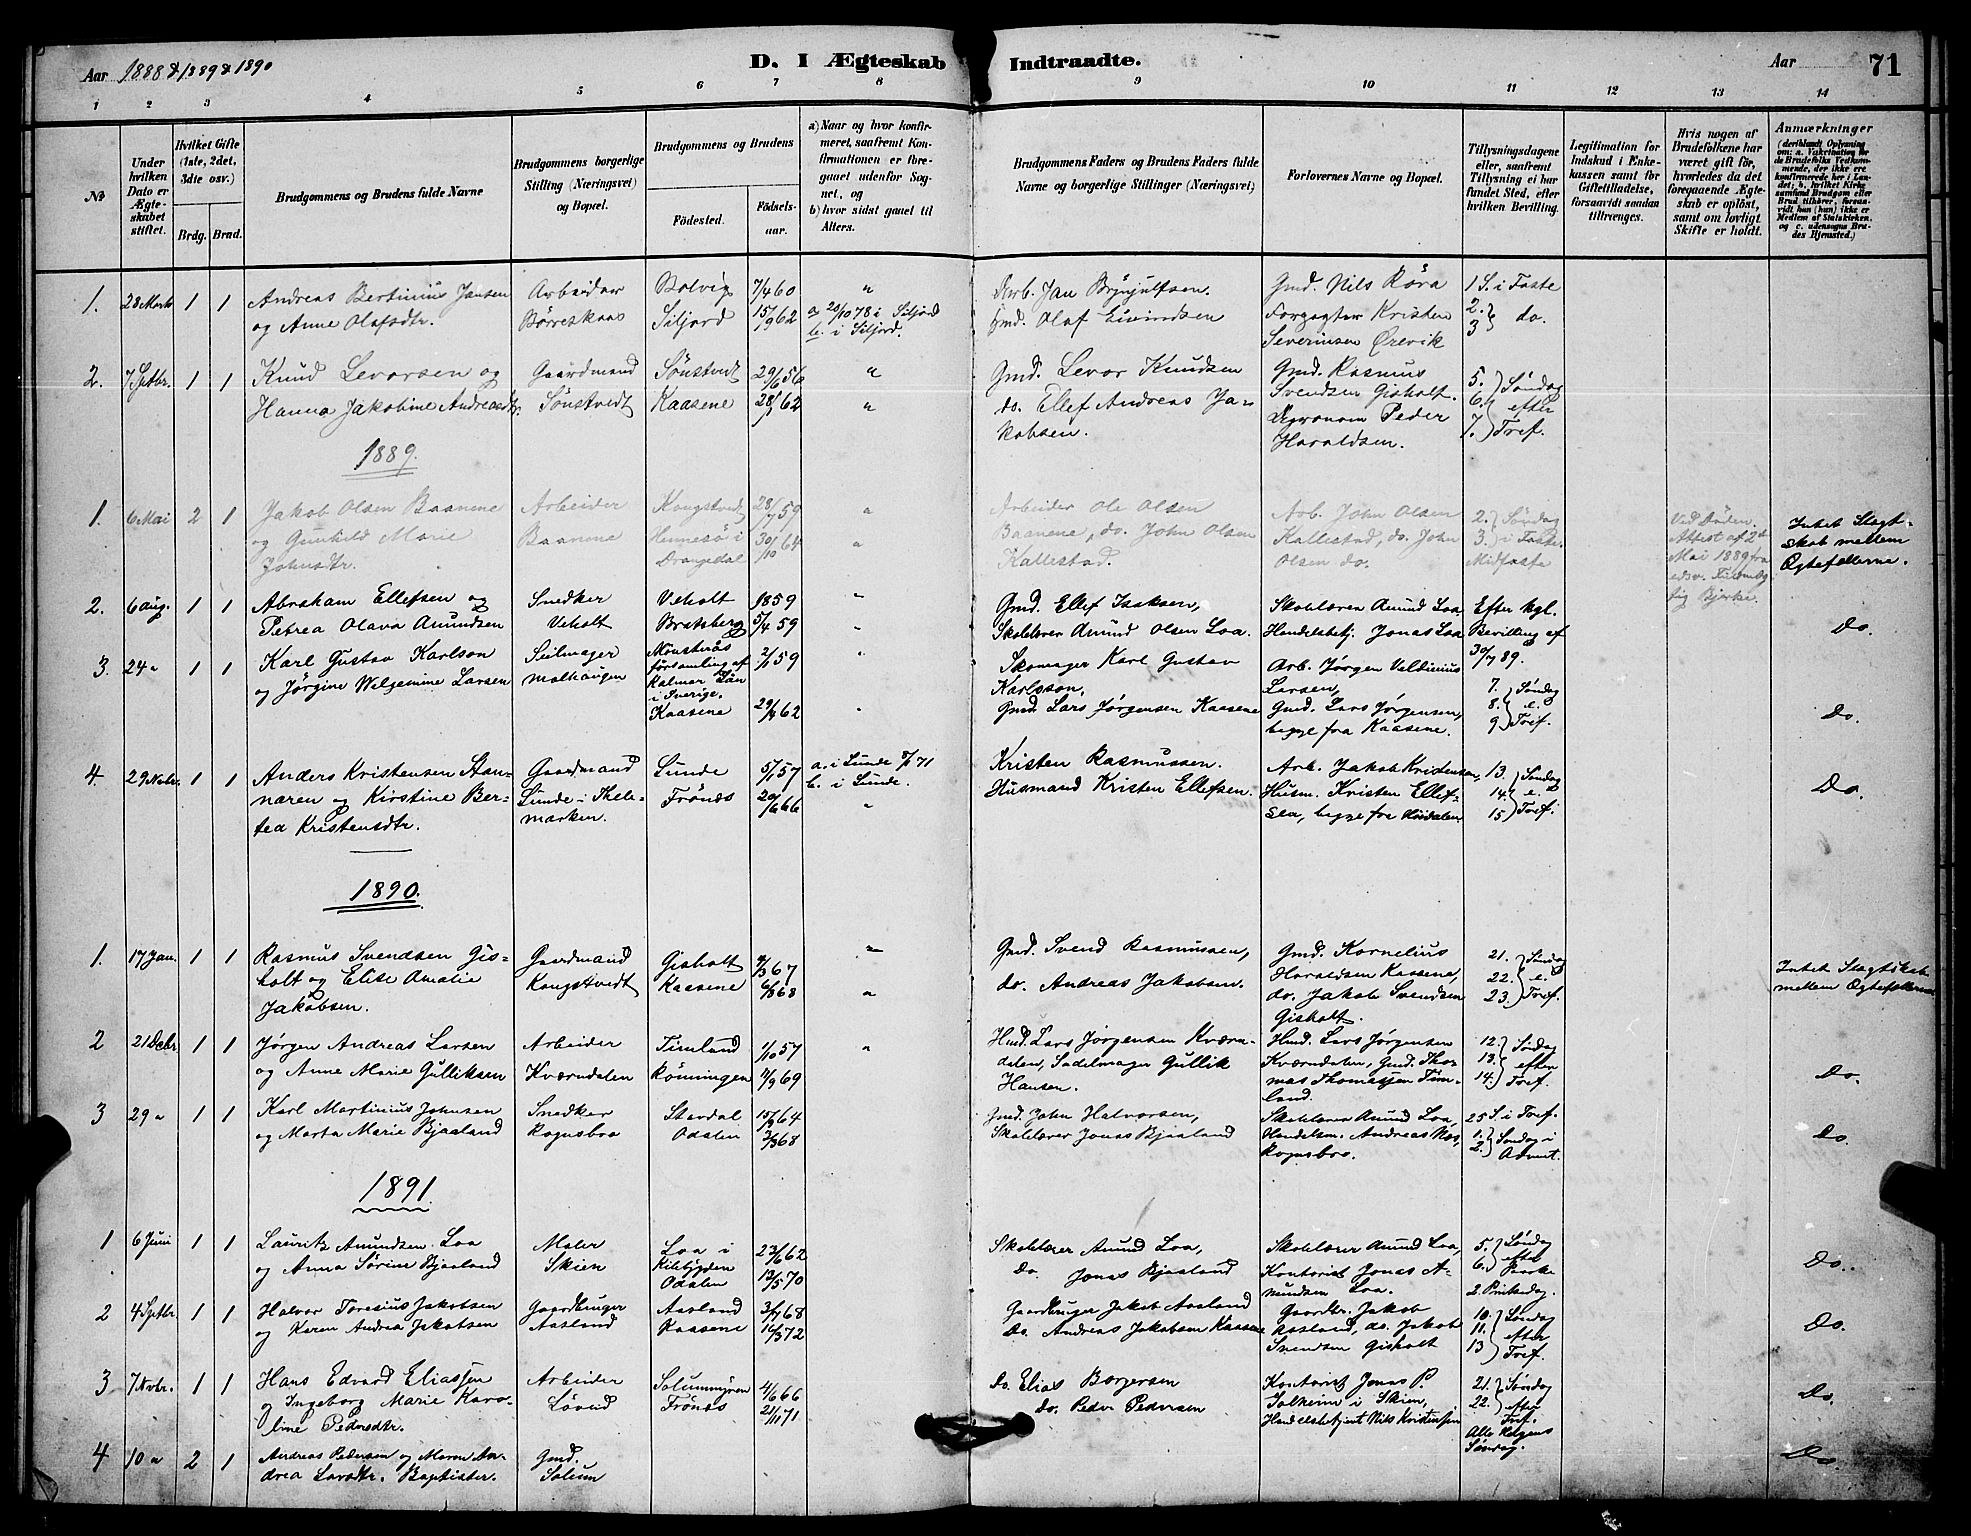 Aar 1888 & 1889 & 1890
D. I Ægteskab Indtraadte.
Aar
71
1 2 3 4 5 6 7 8 9 10 11 12 13 14
No
Under hvilken Dato er Ægteskabet stiftet.
Hvilket Gifte (1ste, 2det, 3die osv.)
Brdg. Brud.
Brudgommens og Brudens fulde Navne
Brudgommens borgerlige Stilling (Næringsvei) og Bopæl.
Brudgommens og Brudens
Födested.
Födselsaar.
a) Naar og hvor konfirmeret, saafremt Konfirmationen er foregaaet udenfor Sognet, og
b) hvor sidst gaaet til Alters.
Brudgommens Faders og Brudens Faders fulde Navne og borgerlige Stillinger (Næringsvei)
Forlovernes Navne og Bopæl.
Tillysningsdagene eller, saafremt Tillysning ei har fundet Sted, efter hvilken Bevilling.
Legitimation for Indskud i Enkekassen samt for Giftetilladelse, forsaavidt saadan tiltrænges.
Hvis nogen af Brudefolkene har været gift för, hvorledes da det foregaaende Ægteskab er oplöst, samt om lovligt Skifte er holdt.
Anmærkninger
1. 28 Marts 1 1 Andreas Bertinius Jansen Arbeider Bolvig 7/4 60 "
og Anne Olafsdtr. Børreskaas Siljord 15/9 62 a. 20/10 78 i Siljord
b. i Siljord.
Arb. Jan Brynjulfsen. Gmd. Nils Röra 1 S. i Faste
Gmd. Olaf Eivindsen Forpagter Kristen 2. 3 } do.
Severinsen Ørevik
2. 7 Septbr. 1 1 Knud Levorsen og Gaardmand Sönstvedt 29/6 56 "
Hanna Jakobine Andreasdtr. Sönstvedt Kaasene 28/1 62 "
Gmd. Levor Knudsen Gmd. Rasmus 5. } Søndag
do. Ellef Andreas Ja- Svendsen Gisholt. 6. } efter
kobsen. Peder 7. } Tref.
Haraldsen.
1889.
1. 6 Mai 2 1 Jakob Olsen Baanene Arbeider Kongstvedt 28/7 59 "
og Gunhild Marie Baanene Hennesö i 30/10 64 "
Johnsdtr. Drangedal
Arbeider Ole Olsen Arb. John Olsen 2. } Søndag
Baanene, do. John Olsen Kallestad, do. John 3. } i Faste.
Kallestad. Olsen do. Midfaste
Ved Döden.
Attest af 2den
Mai 1889 fra
Intet Slægt-
skab mellem
Ægtefællerne.
2. 6 Aug. 1 1 Abraham Ellefsen og Snedker Veholt 1859 "
Petrea Olava Amundsen Veholt Bratsberg 5/4 59 "
Gmd. Ellef Isaksen, Skolelærer Amund Loa Efter kgl.
Skolelærer Amund Olsen Loa. Handelsbetj. Jonas Loa Bevilling af
30/7 89.
Do.
3. 24 " 1 1 Karl Gustav Karlson Seilmager Mönsterås 2/1 59 "
og Jørgine Wilhelmine Larsen Malhaugen församling af
Kalmar Län
i Sverige.
Kaasene 29/4 62 "
Skomager Karl Gustav Arb. Jørgen Veldinius 7. } Søndag
Karlsson, Larsen, 8. } e.
Gmd. Lars Jørgensen Kaasene Gmd. Lars Jørgensen, 9. } Tref.
begge fra Kaasene.
Do.
4. 29 Novbr. 1 1 Anders Kristensen Stan- Gaardmand Lunde 5/1 57 a. i Lunde 71
naren og Kirstine Ber- Lunde i Thele- Frönes 20/6 66 b. i Lunde.
tea Kristensdtr. marken. "
Kristen Rasmussen. Arb. Jakob Kristensen, 13. } Søndag
Husmand Kristen Ellefsen. Husm. Kristen Ellef- 14. } e.
sen, begge fra 15. } Tref.
Do.
1890.
1. 17 Jan. 1 1 Rasmus Svendsen Gis- Gaardmand Gisholt 67 "
holt og Elise Amalie Kongstvedt Kaasene 68 "
Jakobsen.
Gmd. Svend Rasmussen, Gmd. Kornelius 21. } Søndag
do. Andreas Jakobsen. Haraldsen Kaasene, 22. } e.
do. Jakob Svendsen 23. } Tref.
Gisholt.
Intet Slægtskab
mellem Ægtefællerne
2 21 Decbr 1 1 Jørgen Andreas Larsen Arbeider Timland 1/10 57 "
og Anne Marie Gulliksen Kværndalen Rönningen 11/9 69
Husmd. Lars Jörgensen Kværn- Husmd. Lars Jørgensen 12. } Søndag
dalen, Sadelmager Gullik Kværndalen, Gmd. Tho- 13. } efter
Hansen. mas Thomassen Tim- 14. } Tref.
land.
Do.
3 29 " 1 1 Karl Martinius Johnsen Snedker Stordal 64
og Marta Marie Bjaaland Rognsbro Odalen 68
Gmd. John Halvorsen, Skolelærer Amund Loa, 25 S. i Tref.
Skolelærer Jonas Bjaaland Handelsm. Andreas Næs, 1. } Søndag i
Rognsbro. 2. } Advent.
Do.
1891.
1 6 Juni 1 1 Lauritz Amundsen Loa Maler Loa i 23/6 62
og Anna Sørine Bjaaland Skien Kilebygden
Odalen 13/5 70
Skolelærer Amund Loa, Skolelærer Amund Loa, 5. } Søndag
Do. Jonas Bjaaland Kontorist Jonas A- 6. } efter Paaske
mundsen Loa. 2. Pintsedag.
Do.
2 4 Septbr. 1 1 Halvor Toresius Jakobsen Gaardbruger Aasland 3/7 68
og Karen Andrea Jakobsen Aasland Kaasene 16/3 72
Gaardbruger Jakob Aasland Gaardbr. Jakob 10. } Søndag
Do. Andreas Jakobsen Kaasene Aasland, do. Jakob 11. } efter
Svendsen Gisholt 13 } Tref.
Do.
3 7 Novbr. 1 1 Hans Edvard Eliassen Arbeider Solummyren 4/6 66
og Ingeborg Marie Karo- Lövud Frönes 21/11 71
line Pedersdtr.
do. Elias Borgersen Kontorist Jonas P. 21. } Søndag
do. Peder Pedersen i Skien, 22. } efter Tref.
Handelsbetjent Nils Kristensen Alle Helgens
Søndag.
Do.
4 10 " 2 1 Andreas Pedersen og Maren An- Gmd.
drea Larsdtr. Baptister. Solum
Do.